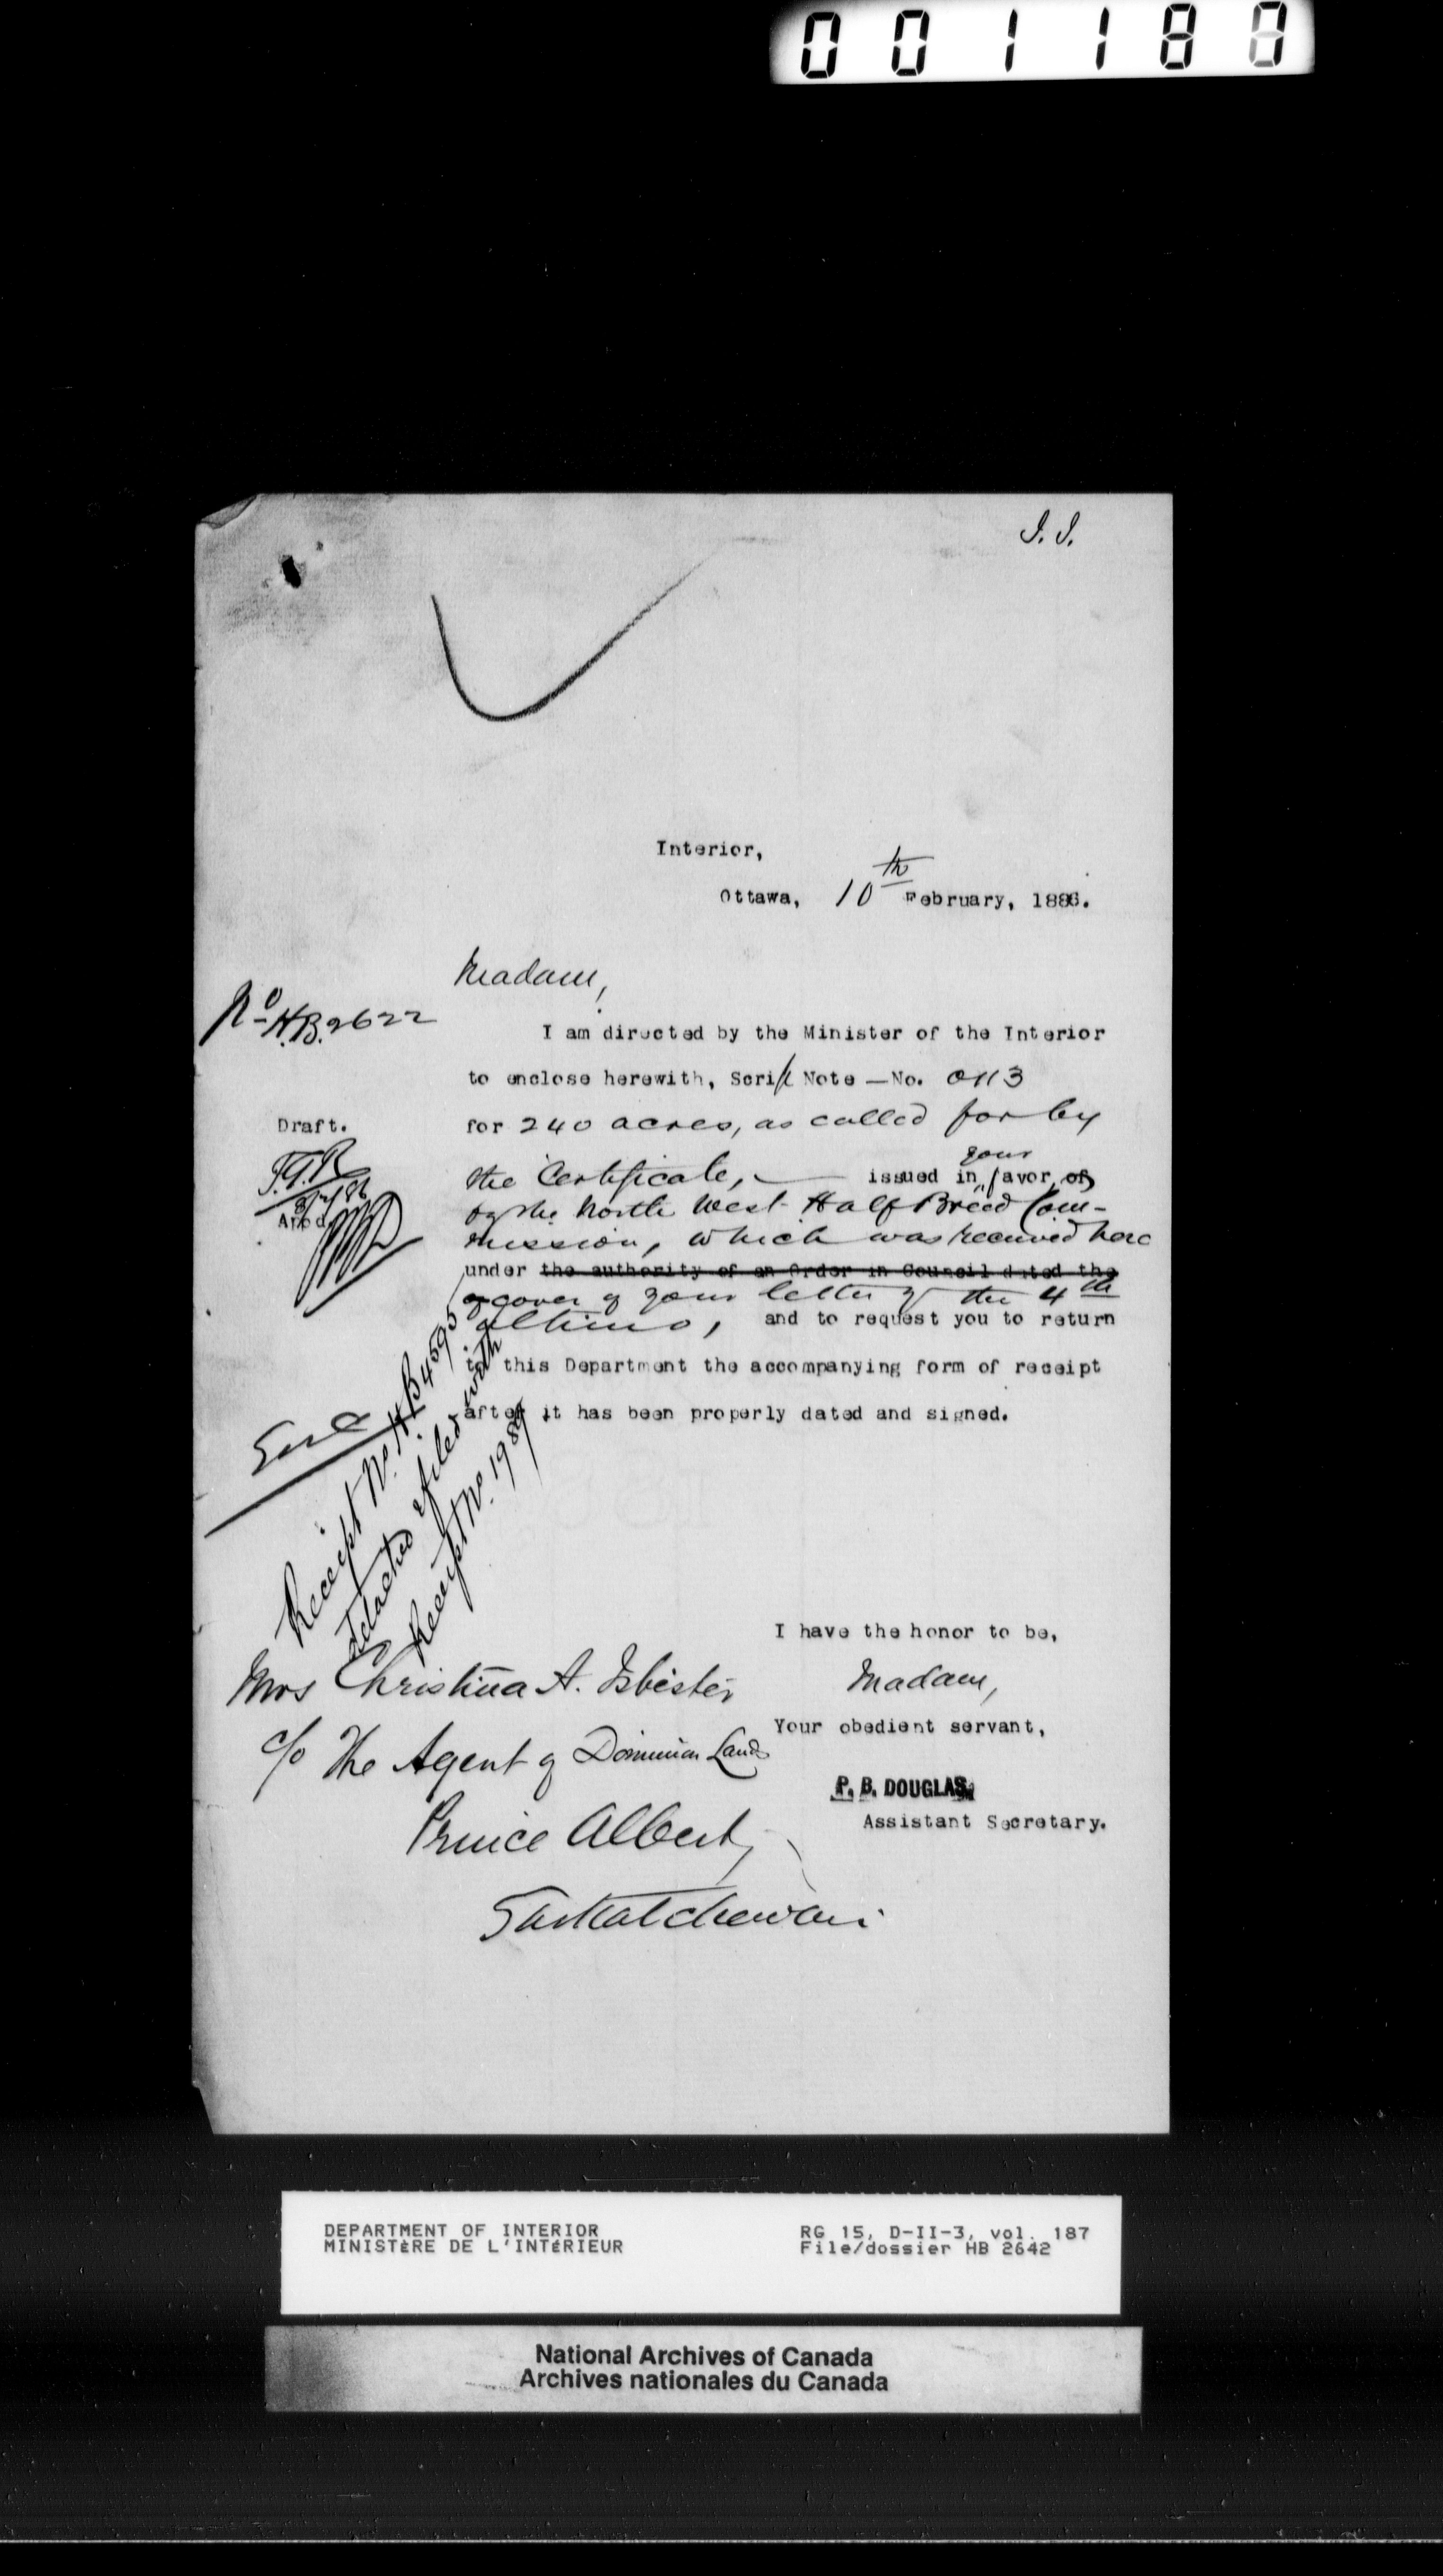 001188
I. I.
Interior,
Ottawa, 10th February, 1886.
Madam,
No H.B. 2622
I am directed by the Minister of the Interior
to enclose herewith, Scrip Note — No. 0113
Draft.
for 240 acres, as called for by
your
the Certificate, — issued in favor of
by the North West Half Breed Com-
mission, which was received here
under the authority of an Order in Council dated the
cover of your letter of the 4th
ultimo, and to request you to return
to this Department the accompanying form of receipt
after it has been properly dated and signed.
Encl
Receipt No. HB 4595
detached & filed with
Receipt No. 1984
I have the honor to be,
Madam,
Your obedient servant,
P. B. DOUGLAS,
Assistant Secretary.
Mrs Christina A. Isbister
c/o The Agent of Dominion Lands
Prince Albert,
Saskatchewan
DEPARTMENT OF INTERIOR
MINISTÈRE DE L'INTÉRIEUR
RG 15, D-II-3, vol. 187
File/dossier HB 2642
National Archives of Canada
Archives nationales du Canada